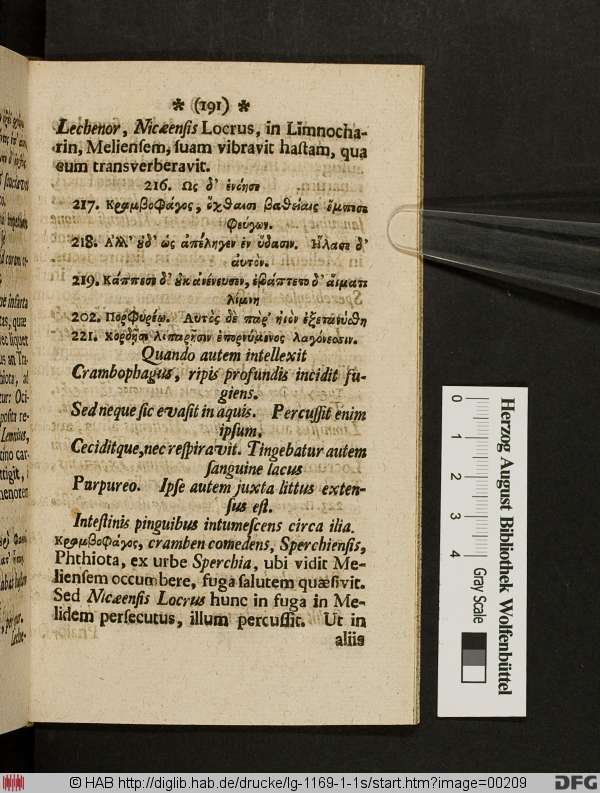 * (191) *
Lechenor, Nicæensis Locrus, in Limnocha-
rin, Meliensem, ſuam vibravit haſtam, qua
eum transverberavit.
216. Ως δ' ἐνόησε
217. Κραμβοφάγος, ὄχθαισι βαθείαις ἔμπεσε
φεύγων.
218. Ἀλλ' ἐδ' ὡς ἀπέληγεν ἐν ὕδασιν. Ἤλασε δ'
ἀυτὸν.
219. Κάππεσε δ' ἐκ ἀνένευσεν, ἐβάπτετο δ' αἵματι
λίμνη
202. Πορφυρέῳ. Αυτὸς δὲ παρ' ἠϊον ἐξετανύθη
221. Χορδῇσι λιπαρῇσιν ἐπορνύμενος λαγόνεσσιν.
Quando autem intellexit
Crambophagus, ripis profundis incidit fu-
giens.
Sed neque ſic evaſit in aquis. Percuſſit enim
ipſum.
Ceciditque, nec reſpiravit. Tingebatur autem
ſanguine lacus
Purpureo. Ipſe autem juxta littus exten-
ſus eſt.
Inteſtinis pinguibus intumeſcens circa ilia.
Κραμβοφάγος, cramben comedens, Sperchienſis,
Phthiota, ex urbe Sperchia, ubi vidit Me-
lienſem occumbere, fuga ſalutem quæſivit.
Sed Nicæenſis Locrus hunc in fuga in Me-
lidem perſecutus, illum percuſſit. Ut in
aliis
0 1 2 3 4
Herzog August Bibliothek Wolfenbüttel
Gray Scale
© HAB http://diglib.hab.de/drucke/lg-1169-1-1s/start.htm?image=00209
DFG